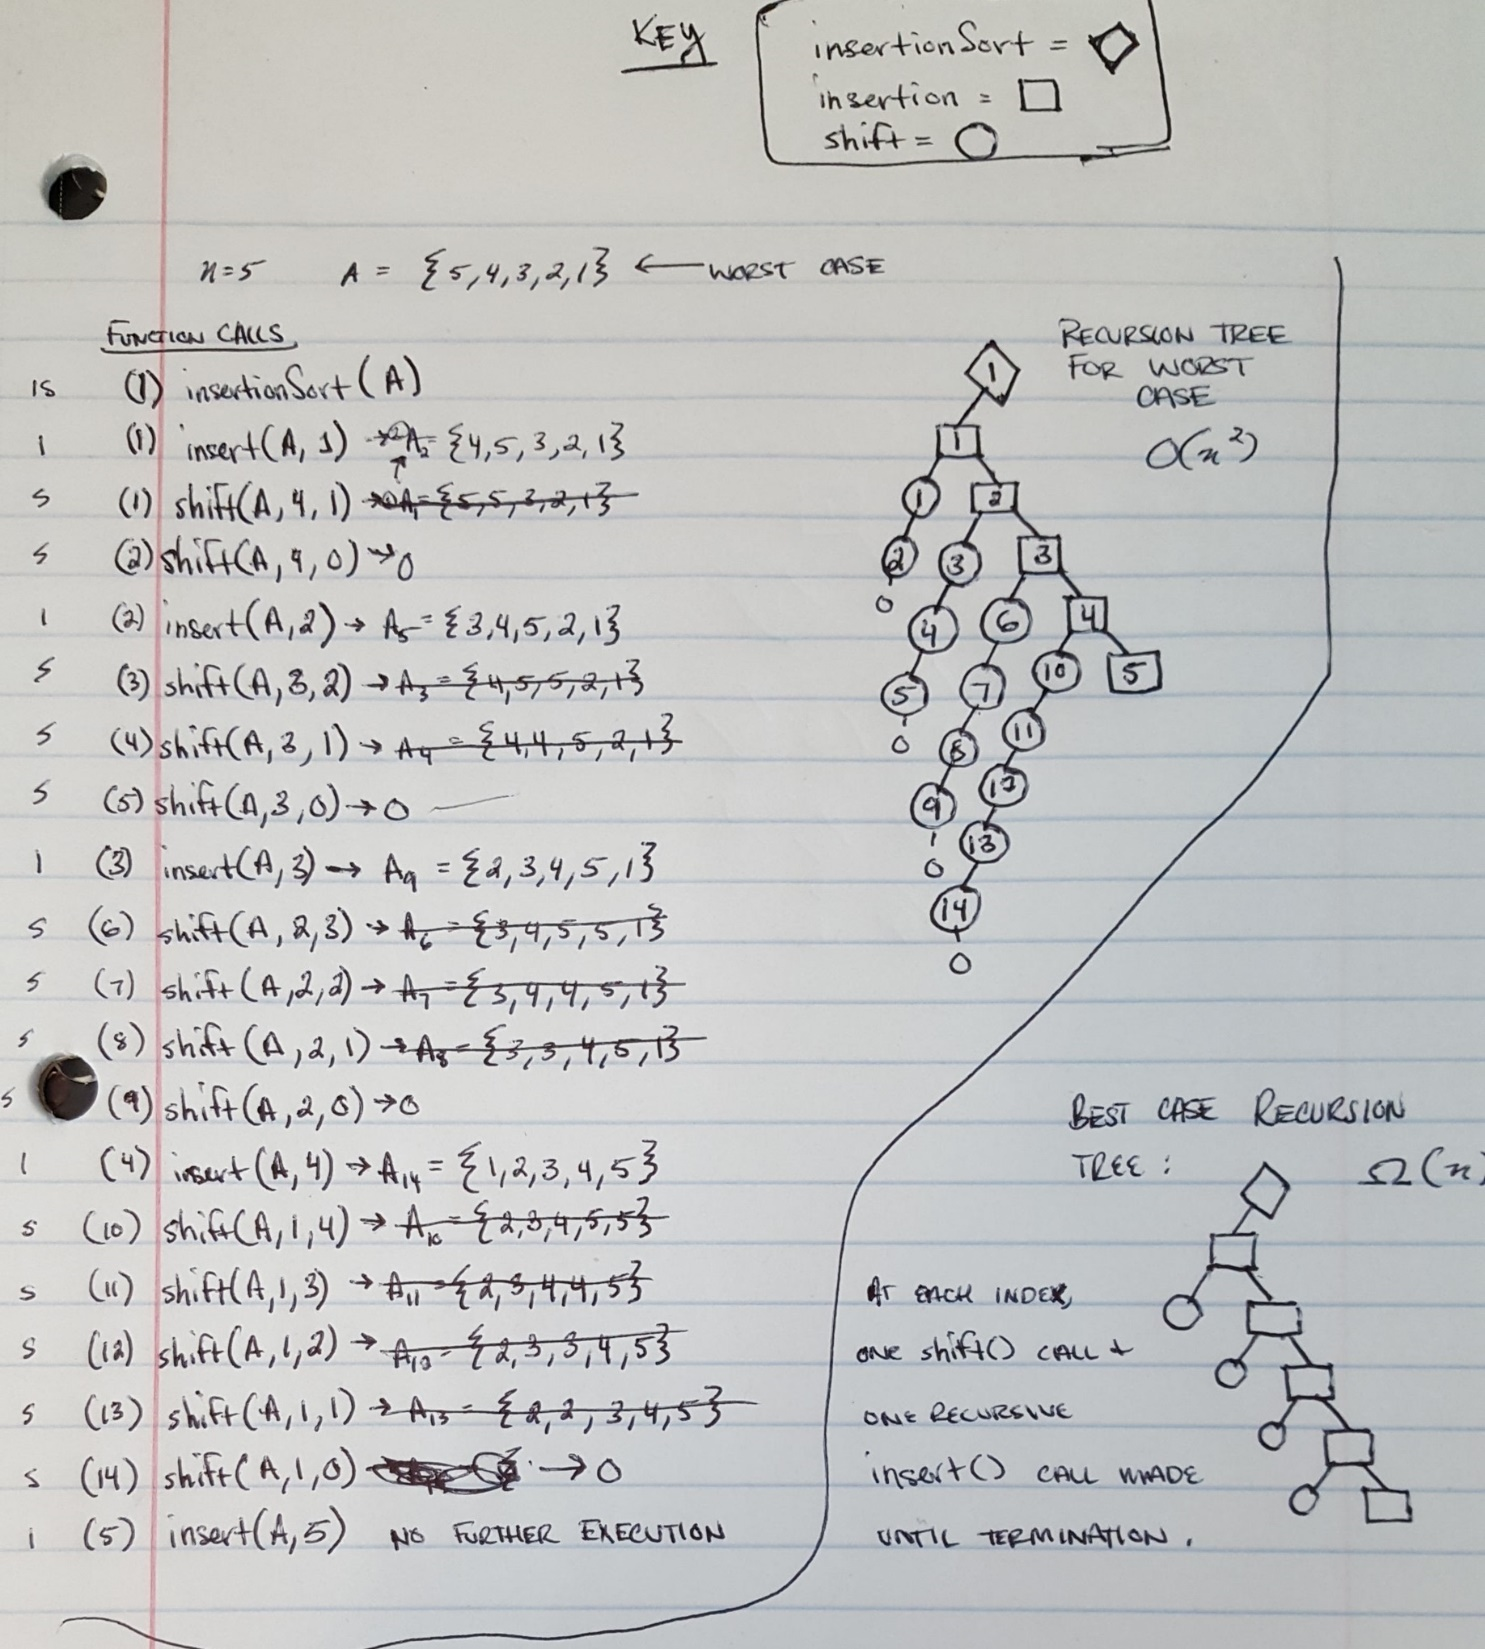 KEY
insertionSort = ◇
insertion = □
shift = ○
n=5 A = {5,4,3,2,1} ← WORST CASE
FUNCTION CALLS
is (1) insertionSort(A)
i (1) insert(A, 1) → A₂ = {4,5,3,2,1}
s (1) shift(A, 4, 1) → A₁ = {5,5,3,2,1}
s (2) shift(A, 4, 0) → 0
i (2) insert(A, 2) → A₅ = {3,4,5,2,1}
s (3) shift(A, 3, 2) → A₃ = {4,5,5,2,1}
s (4) shift(A, 3, 1) → A₄ = {4,4,5,2,1}
s (5) shift(A, 3, 0) → 0
i (3) insert(A, 3) → A₉ = {2,3,4,5,1}
s (6) shift(A, 2, 3) → A₆ = {3,4,5,5,1}
s (7) shift(A, 2, 2) → A₇ = {3,4,4,5,1}
s (8) shift(A, 2, 1) → A₈ = {3,3,4,5,1}
s (9) shift(A, 2, 0) → 0
i (4) insert(A, 4) → A₁₄ = {1,2,3,4,5}
s (10) shift(A, 1, 4) → A₁₀ = {2,3,4,5,5}
s (11) shift(A, 1, 3) → A₁₁ = {2,3,4,4,5}
s (12) shift(A, 1, 2) → A₁₂ = {2,3,3,4,5}
s (13) shift(A, 1, 1) → A₁₃ = {2,2,3,4,5}
s (14) shift(A, 1, 0) → 0
i (5) insert(A, 5) NO FURTHER EXECUTION
RECURSION TREE
FOR WORST
CASE
O(n²)
1
1
1 2
2 3 3
0 4 6 4
5 7 10 5
0 8 11
9 12
0 13
14
0
BEST CASE RECURSION
TREE : Ω(n)
AT EACH INDEX,
ONE shift() CALL +
ONE RECURSIVE
insert() CALL MADE
UNTIL TERMINATION.